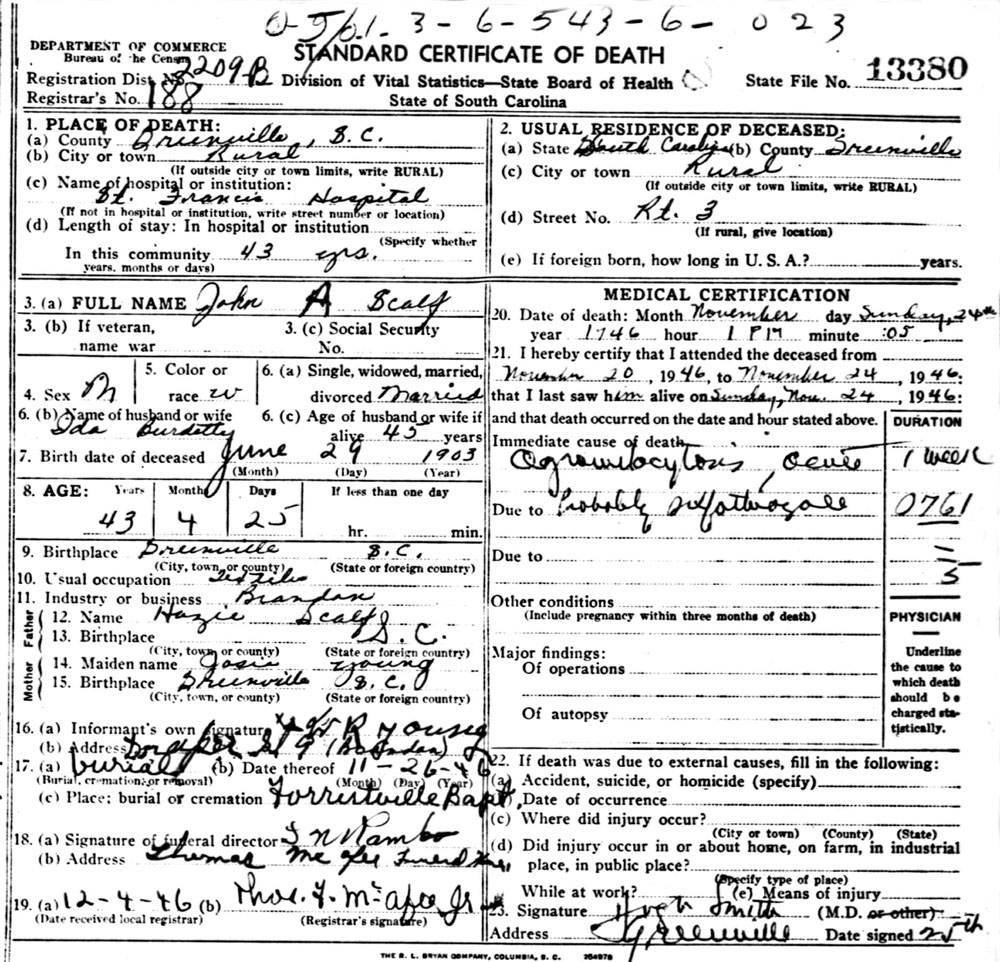 0561. 3 - 6 - 543 - 6 - 023
DEPARTMENT OF COMMERCE
Bureau of the Census
STANDARD CERTIFICATE OF DEATH
Registration Dist. No. 2209-B
Division of Vital Statistics—State Board of Health
State File No. 13380
Registrar's No. 188
State of South Carolina
1. PLACE OF DEATH:
(a) County Greenville, S.C.
(b) City or town Rural
(If outside city or town limits, write RURAL)
(c) Name of hospital or institution:
St. Francis Hospital
(If not in hospital or institution, write street number or location)
(d) Length of stay: In hospital or institution
(Specify whether
In this community 43 yrs.
years, months or days)
2. USUAL RESIDENCE OF DECEASED:
(a) State South Carolina (b) County Greenville
(c) City or town Rural
(If outside city or town limits, write RURAL)
(d) Street No. Rt. 3
(If rural, give location)
(e) If foreign born, how long in U. S. A.? years.
3. (a) FULL NAME John A Scalf
3. (b) If veteran,
name war
3. (c) Social Security
No.
4. Sex M
5. Color or
race W
6. (a) Single, widowed, married,
divorced Married
6. (b) Name of husband or wife
Ida Burdette
6. (c) Age of husband or wife if
alive 45 years
7. Birth date of deceased June 29 1903
(Month) (Day) (Year)
8. AGE: Years Months Days If less than one day
43 4 25 hr. min.
9. Birthplace Greenville S.C.
(City, town, or county) (State or foreign country)
10. Usual occupation Textile
11. Industry or business Brandon
Father
12. Name Hazie Scalf
13. Birthplace S.C.
(City, town, or county) (State or foreign country)
Mother
14. Maiden name Josie Young
15. Birthplace Greenville S.C.
(City, town, or county) (State or foreign country)
16. (a) Informant's own signature R Young
(b) Address Draper St 9 (Brandon)
17. (a) burial (b) Date thereof 11-26-46
(Burial, cremation, or removal) (Month) (Day) (Year)
(c) Place; burial or cremation Forrestville Bapt.
18. (a) Signature of funeral director T N Rambo
(b) Address Thomas McAfee Funeral Home
19. (a) 12-4-46 (b) Thos. F. McAfee Jr
(Date received local registrar) (Registrar's signature)
MEDICAL CERTIFICATION
20. Date of death: Month November day Sunday, 24th
year 1946 hour 1 PM minute :05
21. I hereby certify that I attended the deceased from
November 20, 1946, to November 24, 1946:
that I last saw him alive on Sunday, Nov. 24, 1946:
and that death occurred on the date and hour stated above.
DURATION
Immediate cause of death
Agranulocytosis, acute 1 week
Due to Probably sulfathiazole 0761
Due to
5
Other conditions
(Include pregnancy within three months of death)
PHYSICIAN
Major findings:
Of operations
Of autopsy
Underline
the cause to
which death
should be
charged sta-
tistically.
22. If death was due to external causes, fill in the following:
(a) Accident, suicide, or homicide (specify)
(b) Date of occurrence
(c) Where did injury occur?
(City or town) (County) (State)
(d) Did injury occur in or about home, on farm, in industrial
place, in public place?
(Specify type of place)
While at work? (e) Means of injury
23. Signature Hugh Smith (M.D. or other)
Address Greenville Date signed 25th
THE R. L. BRYAN COMPANY, COLUMBIA, S. C.